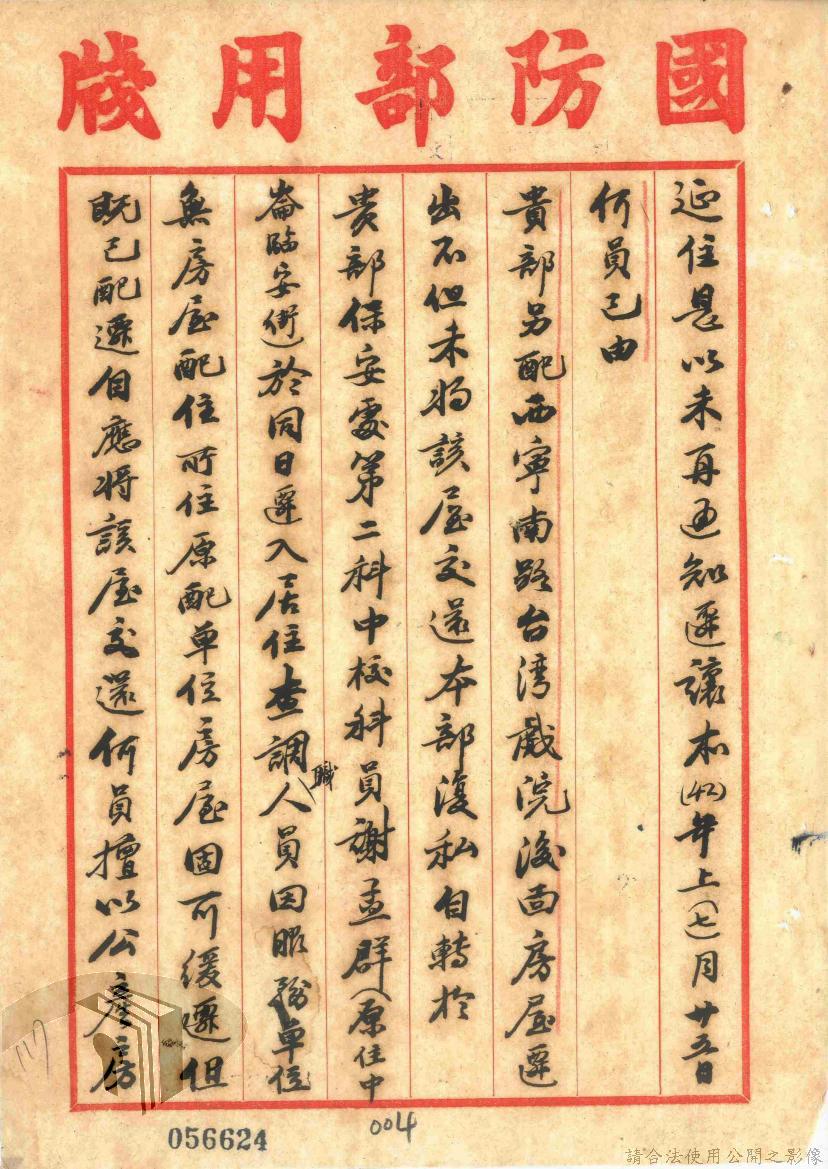 國防部用牋
延住是以未再通知遷讓本(42)年上(七)月廿五日
何員已由
貴部另配西寧南路台湾戲院後面房屋遷
出不但未将該屋交還本部復私自轉於
貴部保安處第二科中校科員謝孟群(原住中
崙臨安街)於同日遷入居住查調職人員因服務單位
無房屋配住所住原配單位房屋固可緩遷但
既已配遷自應将該屋交還何員擅以公產房
117
056624
004
請合法使用公開之影像